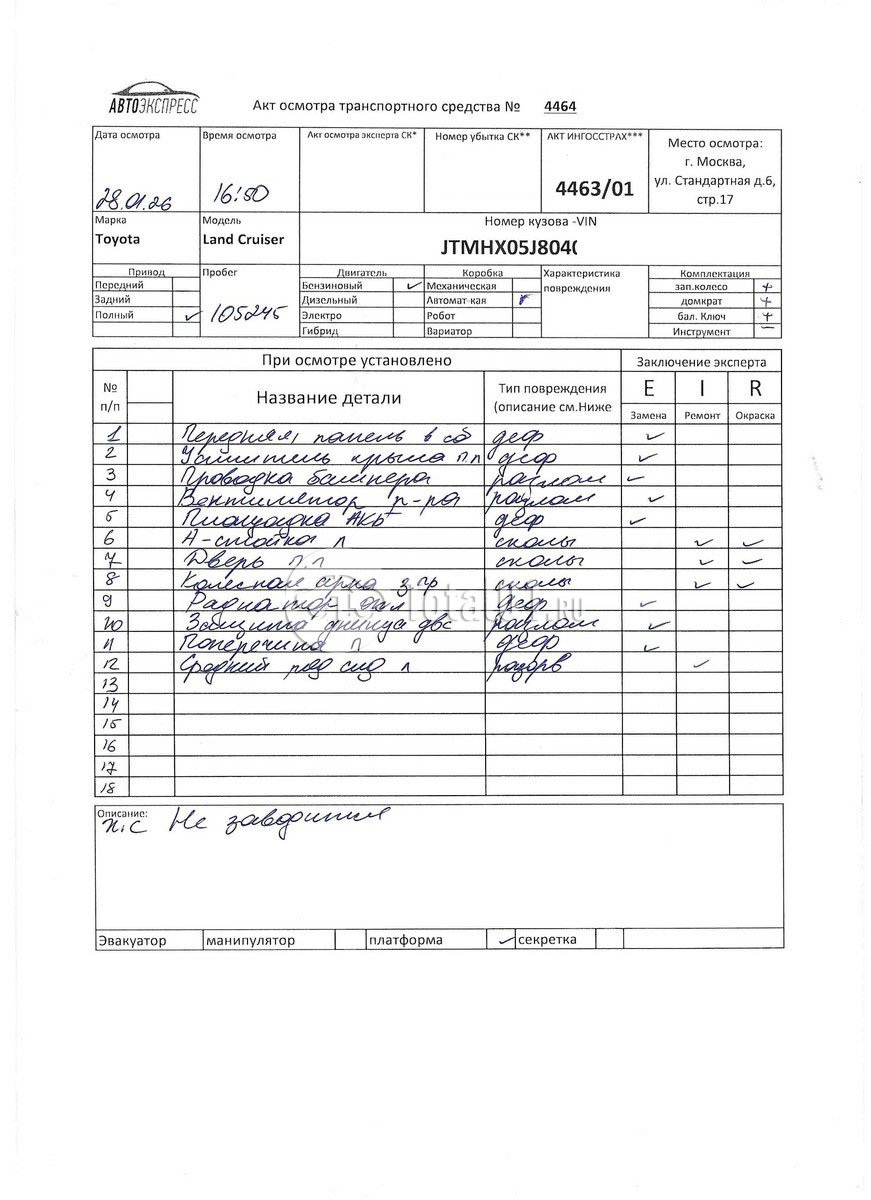 АВТОЭКСПРЕСС
Акт осмотра транспортного средства № 4464
Дата осмотра Время осмотра Акт осмотра эксперта СК* Номер убытка СК** АКТ ИНГОССТРАХ*** Место осмотра:
г. Москва,
28.01.26 16:50 4463/01 ул. Стандартная д.6,
стр.17
Марка Модель Номер кузова -VIN
Toyota Land Cruiser JTMHX05J804(
Привод Пробег Двигатель Коробка Характеристика повреждения Комплектация
Передний Бензиновый ✓ Механическая зап.колесо +
Задний Дизельный Автомат-кая ✓ домкрат +
Полный ✓ 105245 Электро Робот бал. Ключ +
Гибрид Вариатор Инструмент —
При осмотре установлено Заключение эксперта
№ п/п Название детали Тип повреждения (описание см.Ниже E I R
Замена Ремонт Окраска
1 Передняя панель в сб деф ✓
2 Усилитель крыла п.л деф ✓
3 Проводка бампера разлом ✓
4 Вентилятор р-ра разлом ✓
5 Площадка АКБ деф ✓
6 А-стойка л сколы ✓ ✓
7 Дверь п.л сколы ✓ ✓
8 Колесная арка з пр сколы ✓ ✓
9 Радиатор охл деф ✓
10 Защита днища двс разлом ✓
11 Поперечина П деф ✓
12 Средний ряд сид л разорв ✓
13
14
15
16
17
18
Описание: п.с Не заводится
Эвакуатор манипулятор платформа ✓ секретка